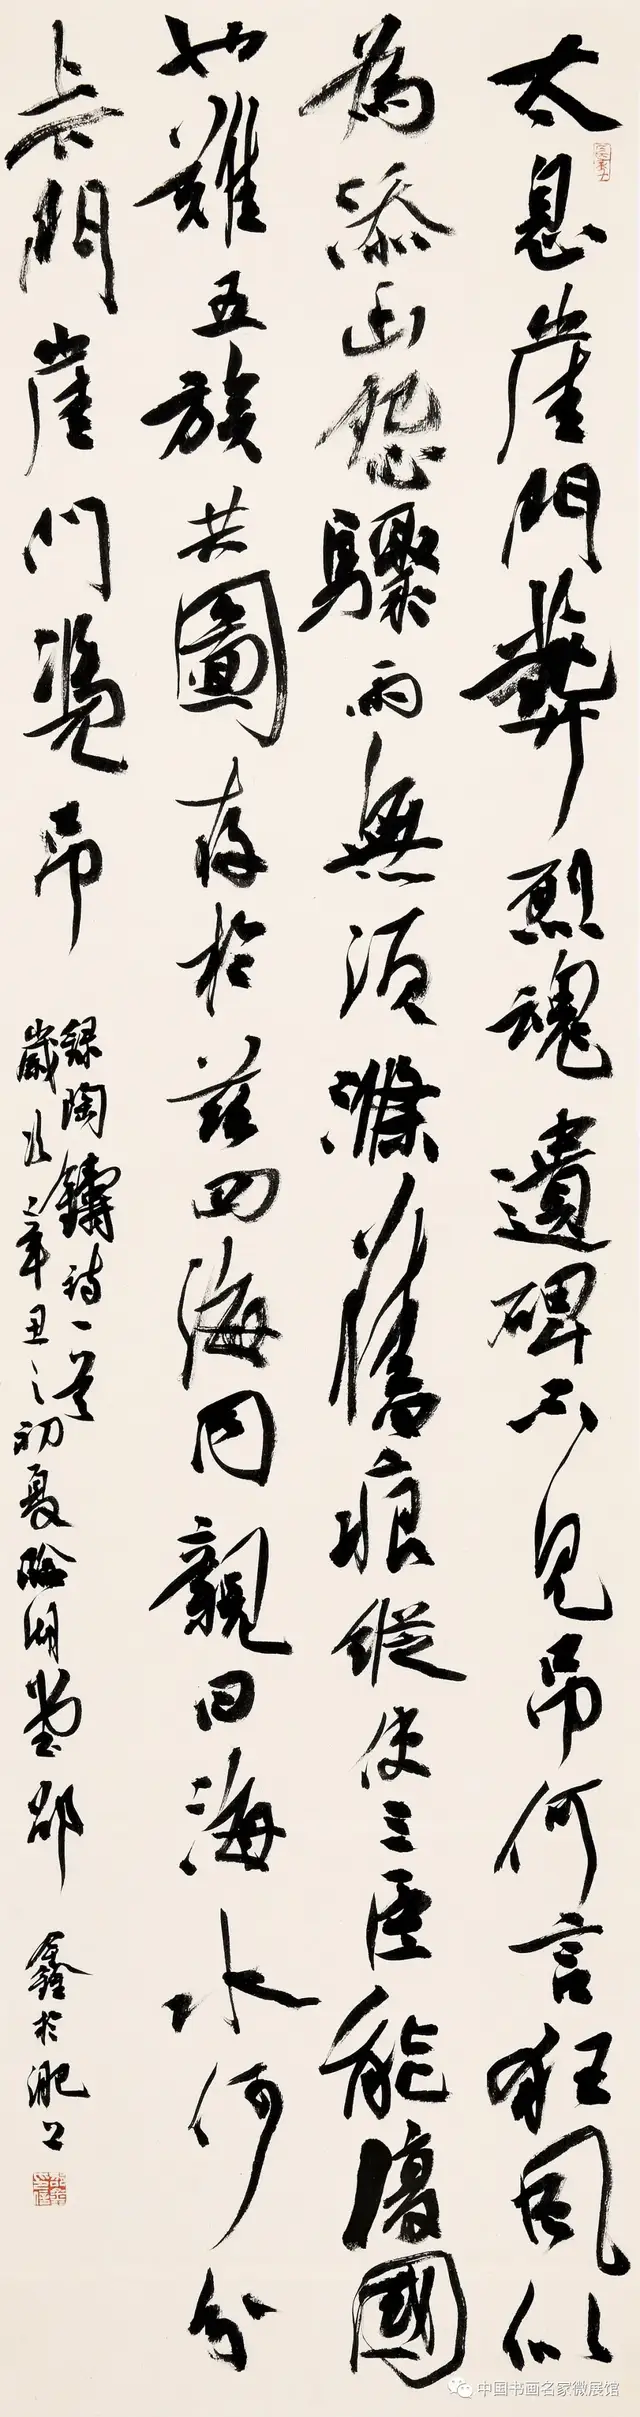 太息崖門葬烈魂遺碑不見吊何言狂風似
為添幽怨驟雨無須滌舊痕縱使三臣能復國
也難五族共圖存於茲四海同親日海水何分
上下門崖門憑吊
錄陶鑄詩一首
歲次辛丑之初夏堂邵鑫於淝上
中国书画名家微展馆